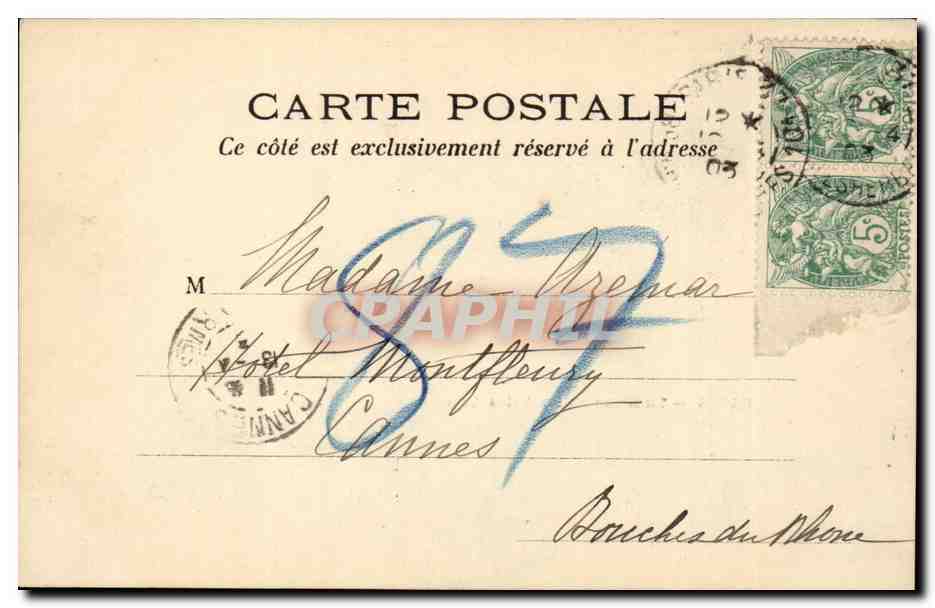 CARTE POSTALE
Ce côté est exclusivement réservé à l'adresse
5c
POSTES
5c
POSTES
87
M Madame Azemar
CPAPHIL
Hôtel Montfleury
Cannes
CANNES
Bouches du Rhone